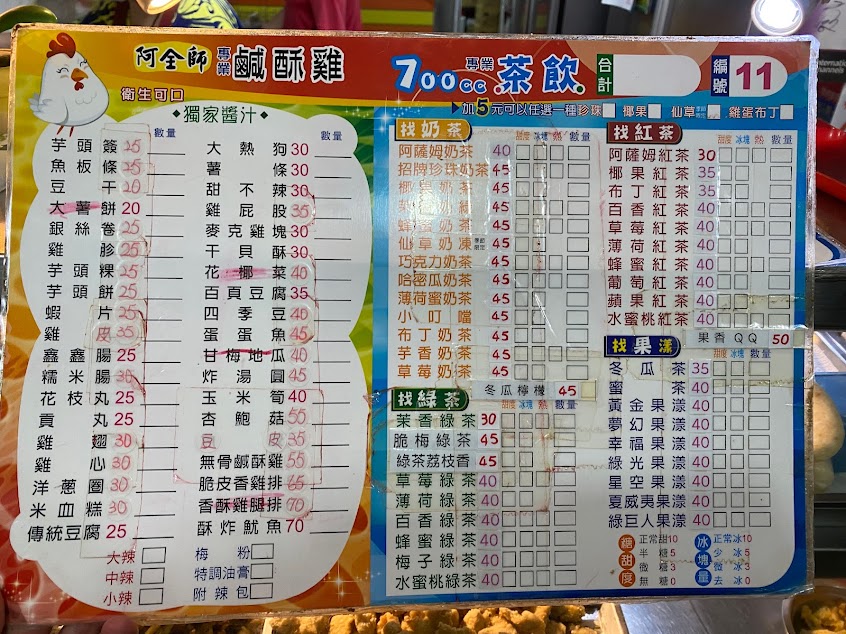 阿全師 專業 鹹酥雞
700cc 專業 茶飲
合計
編號 11
衛生可口
加5元可以任選一種珍珠 椰果 仙草 雞蛋布丁
獨家醬汁
數量
芋頭簽 25
魚板條 25
豆干 20
大薯餅 20
銀絲卷 25
雞胗 25
芋頭粿 25
芋頭餅 25
蝦片 25
雞皮 35
鑫鑫腸 25
糯米腸 30
花枝丸 25
貢丸 25
雞翅 30
雞心 30
洋蔥圈 30
米血糕 30
傳統豆腐 25
大辣
中辣
小辣
數量
大熱狗 30
薯條 30
甜不辣 30
雞屁股 35
麥克雞塊 30
干貝酥 30
花椰菜 40
百頁豆腐 35
四季豆 40
蛋蛋魚 45
甘梅地瓜 40
炸湯圓 45
玉米筍 40
杏鮑菇 55
豆皮 35
無骨鹹酥雞 55
脆皮香雞排 65
香酥雞腿排 70
酥炸魷魚 70
梅粉
特調油膏
附辣包
找奶茶
甜度 冰塊 熱 數量
阿薩姆奶茶 40
招牌珍珠奶茶 45
椰果奶茶 45
茉香奶綠 45
蜂蜜奶茶 45
仙草奶凍 45
巧克力奶茶 45
哈密瓜奶茶 45
薄荷蜜奶茶 45
小叮噹 45
布丁奶茶 45
芋香奶茶 45
草莓奶茶 45
冬瓜檸檬 45
找綠茶
甜度 冰塊 熱 數量
茉香綠茶 30
脆梅綠茶 45
綠茶荔枝香 45
草莓綠茶 40
薄荷綠茶 40
百香綠茶 40
蜂蜜綠茶 40
梅子綠茶 40
水蜜桃綠茶 40
找紅茶
甜度 冰塊 熱 數量
阿薩姆紅茶 30
椰果紅茶 35
布丁紅茶 35
百香紅茶 40
草莓紅茶 40
薄荷紅茶 40
蜂蜜紅茶 40
葡萄紅茶 40
蘋果紅茶 40
水蜜桃紅茶 40
果香QQ 50
找果漾
甜度 冰塊 數量
冬瓜茶 35
蜜茶 40
黃金果漾 40
夢幻果漾 40
幸福果漾 40
綠光果漾 40
星空果漾 40
夏威夷果漾 40
綠巨人果漾 40
糖甜度
正常甜10
半糖5
微糖3
無糖0
冰塊量
正常冰10
少冰5
微冰3
去冰0